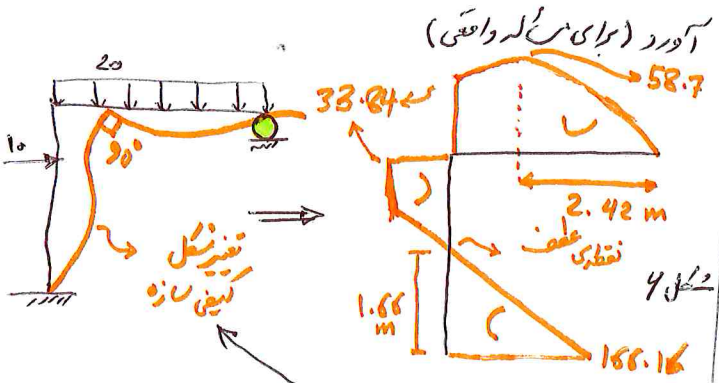 آورد (برای مسأله واقعی)
20
10
90°
تغییر شکل
کیفی سازه
33.84
58.7
2.42 m
نقطه‌ی عطف
1.66
m
شکل ۷
166.16